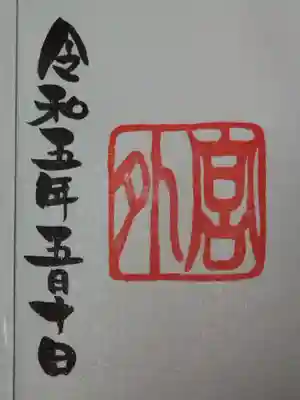 外宮
令和五年五月十日